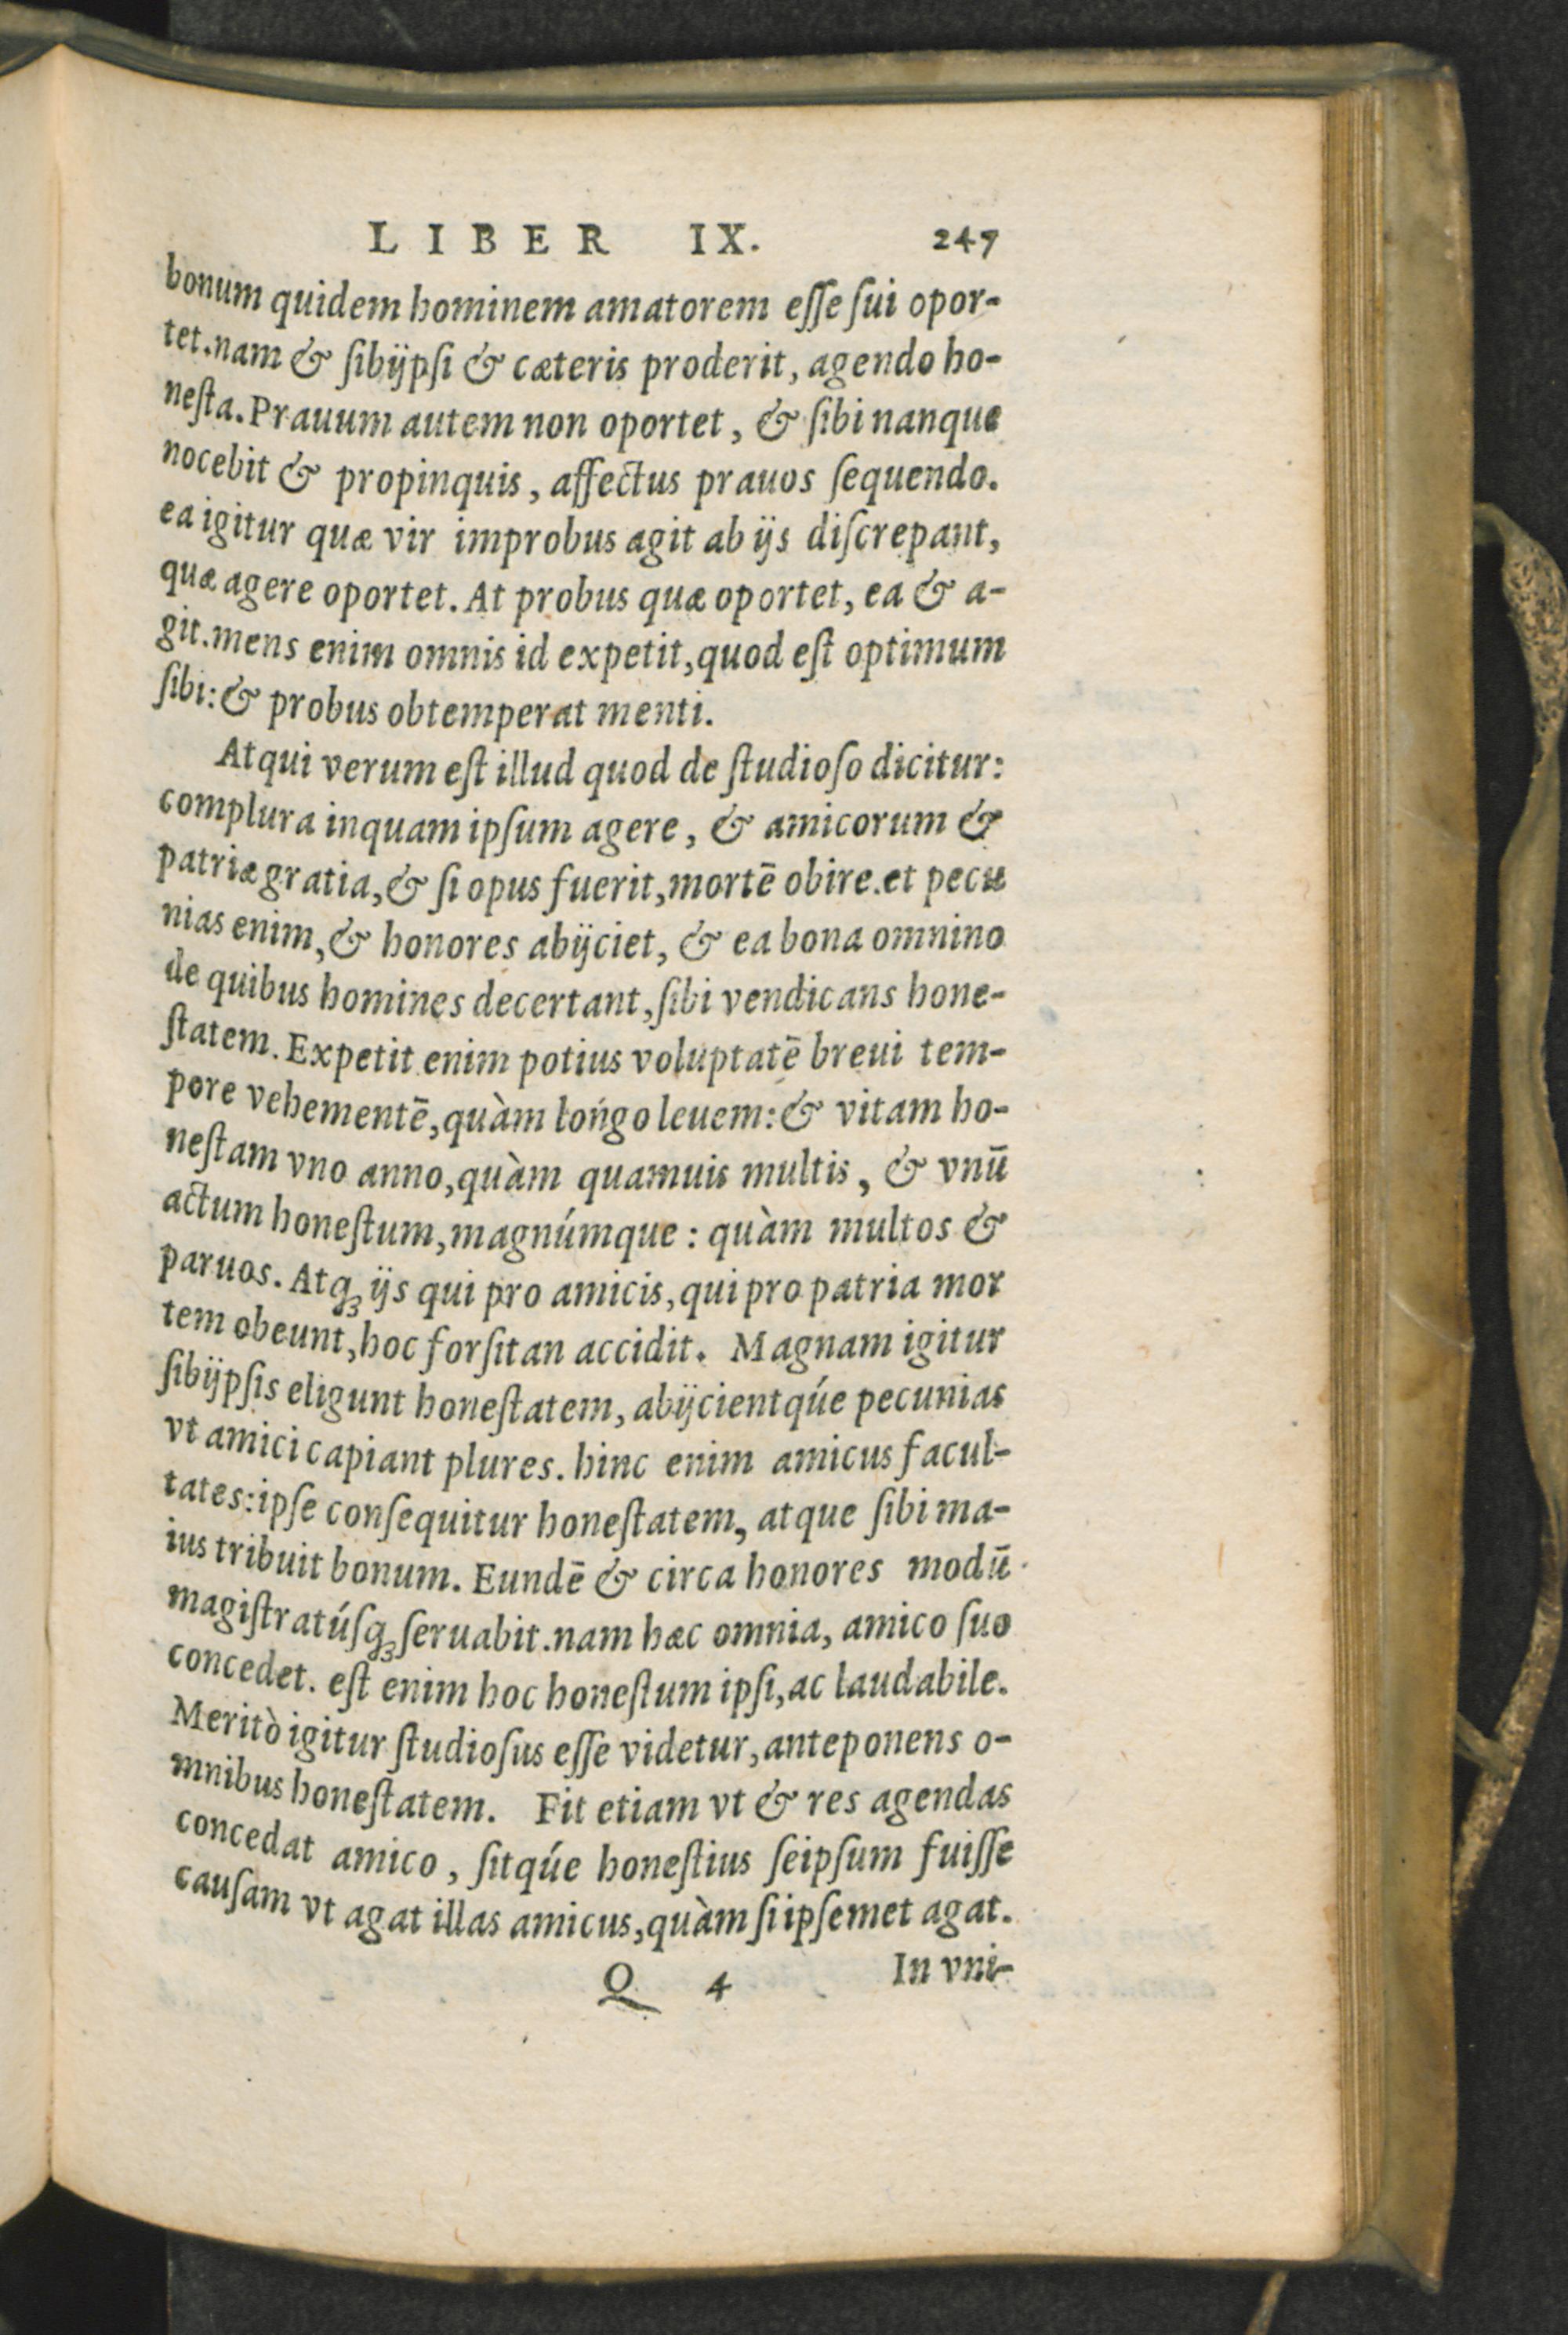 LIBER IX. 247
bonum quidem hominem amatorem eſſe ſui opor-
tet. nam & ſibijpſi & cæteris proderit, agendo ho-
neſta. Prauum autem non oportet, & ſibi nanque
nocebit & propinquis, affectus prauos ſequendo.
ea igitur quæ vir improbus agit ab ijs diſcrepant,
quæ agere oportet. At probus quæ oportet, ea & a-
git. mens enim omnis id expetit, quod eſt optimum
ſibi: & probus obtemperat menti.
Atqui verum eſt illud quod de ſtudioſo dicitur:
complura inquam ipſum agere, & amicorum &
patriæ gratia, & ſi opus fuerit, mortē obire. et pecu
nias enim, & honores abijciet, & ea bona omnino
de quibus homines decertant, ſibi vendicans hone-
ſtatem. Expetit enim potius voluptatē breui tem-
pore vehementē, quàm longo leuem: & vitam ho-
neſtam vno anno, quàm quamuis multis, & vnū
actum honeſtum, magnúmque: quàm multos &
paruos. Atqꝫ ijs qui pro amicis, qui pro patria mor
tem obeunt, hoc forſitan accidit. Magnam igitur
ſibijpſis eligunt honeſtatem, abijcientqúe pecunias
vt amici capiant plures. hinc enim amicus facul-
tates: ipſe conſequitur honeſtatem, atque ſibi ma-
ius tribuit bonum. Eundē & circa honores modū
magiſtratúſqꝫ ſeruabit. nam hæc omnia, amico ſuo
concedet. eſt enim hoc honeſtum ipſi, ac laudabile.
Meritò igitur ſtudioſus eſſe videtur, anteponens o-
mnibus honeſtatem. Fit etiam vt & res agendas
concedat amico, ſitqúe honeſtius ſeipſum fuiſſe
cauſam vt agat illas amicus, quàm ſi ipſemet agat.
Q 4 In vni-